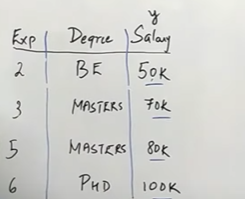 y
Exp Degree Salary
2 BE 50K
3 MASTERS 70K
5 MASTERS 80K
6 PHD 100K